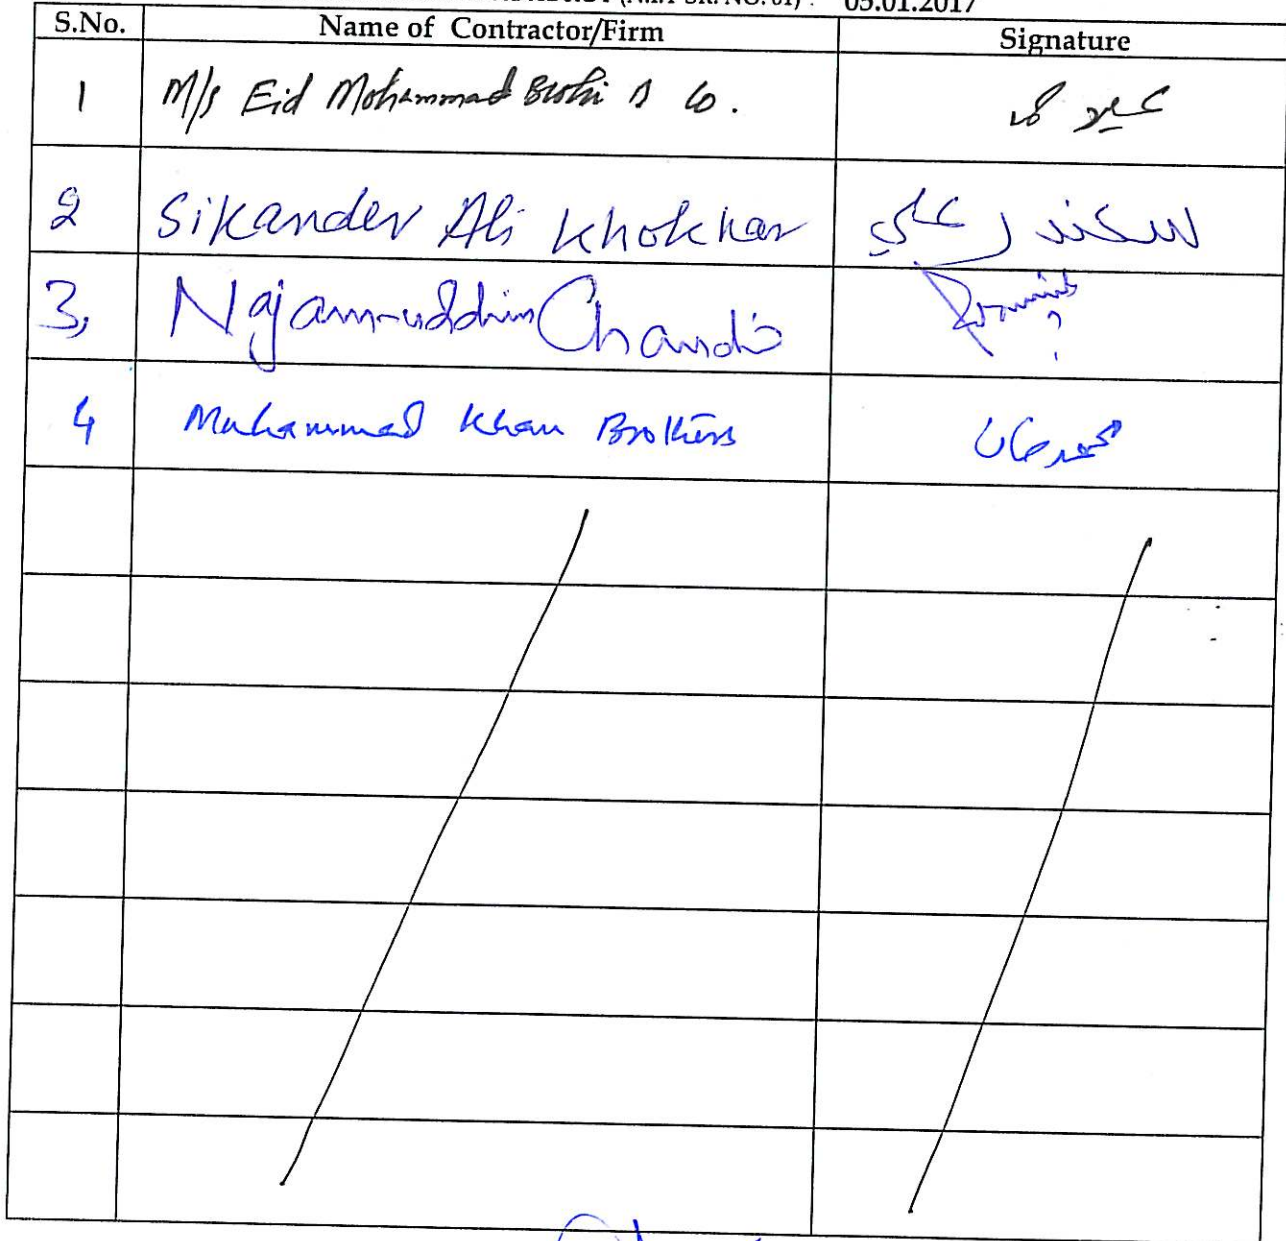 (N.I.T SR. NO. 01) : 05.01.2017
S.No. Name of Contractor/Firm Signature
1 M/s Eid Mohammad Brohi & Co. عيد محمد
2 Sikander Ali Khokhar سڪندر علي
3, Najam-uddin Chandio
4 Muhammad Khan Brothers محمد خان